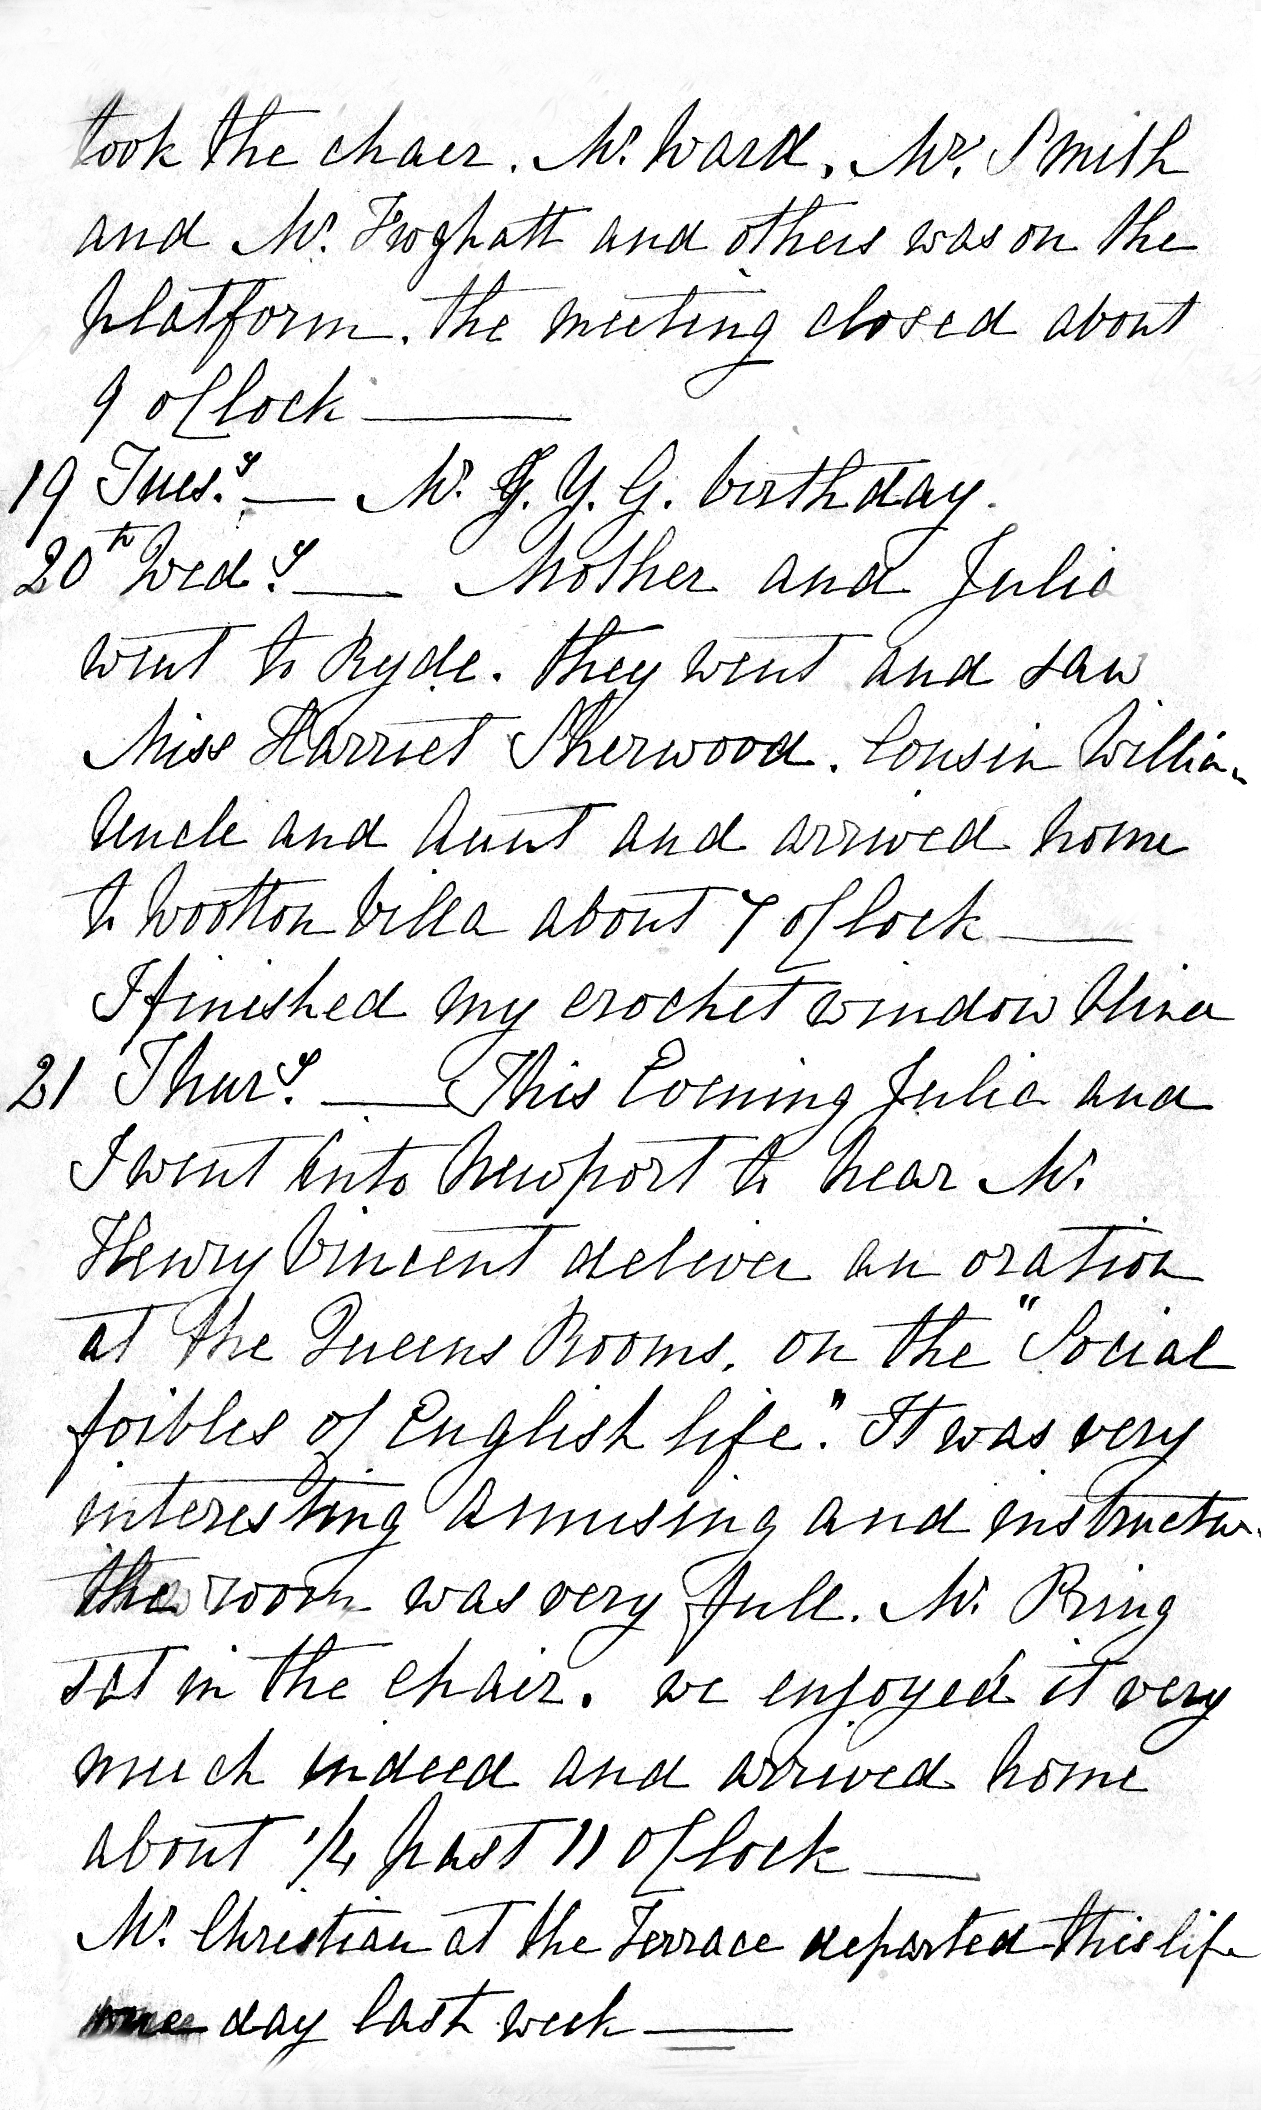 took the chaer. Mr. Ward, Mr. Smith
and Mr. Froghatt and others was on the
platform. the meeting closed about
9 oClock —
19 Tues.y — Mr. G. Y. G. birthday.
20th Wed.y — Mother and Julia
went to Ryde. they went and saw
Miss Harriet Sherwood. Cousin William
Uncle and Aunt and arrived home
to Wootton Villa about 7 oClock —
I finished my crochet window blind
21 Thur.y — This Evening Julia and
I went into Newport to hear Mr.
Henry Vincent deliver an oration
at the Queens Rooms, on the "Social
foibles of English life". It was very
interesting amusing and instructive
the room was very full. Mr. Pring
sat in the chair. we enjoyed it very
much indeed and arrived home
about 1/4 past 11 oClock —
Mr. Christian at the Terrace departed this life
one day last week —